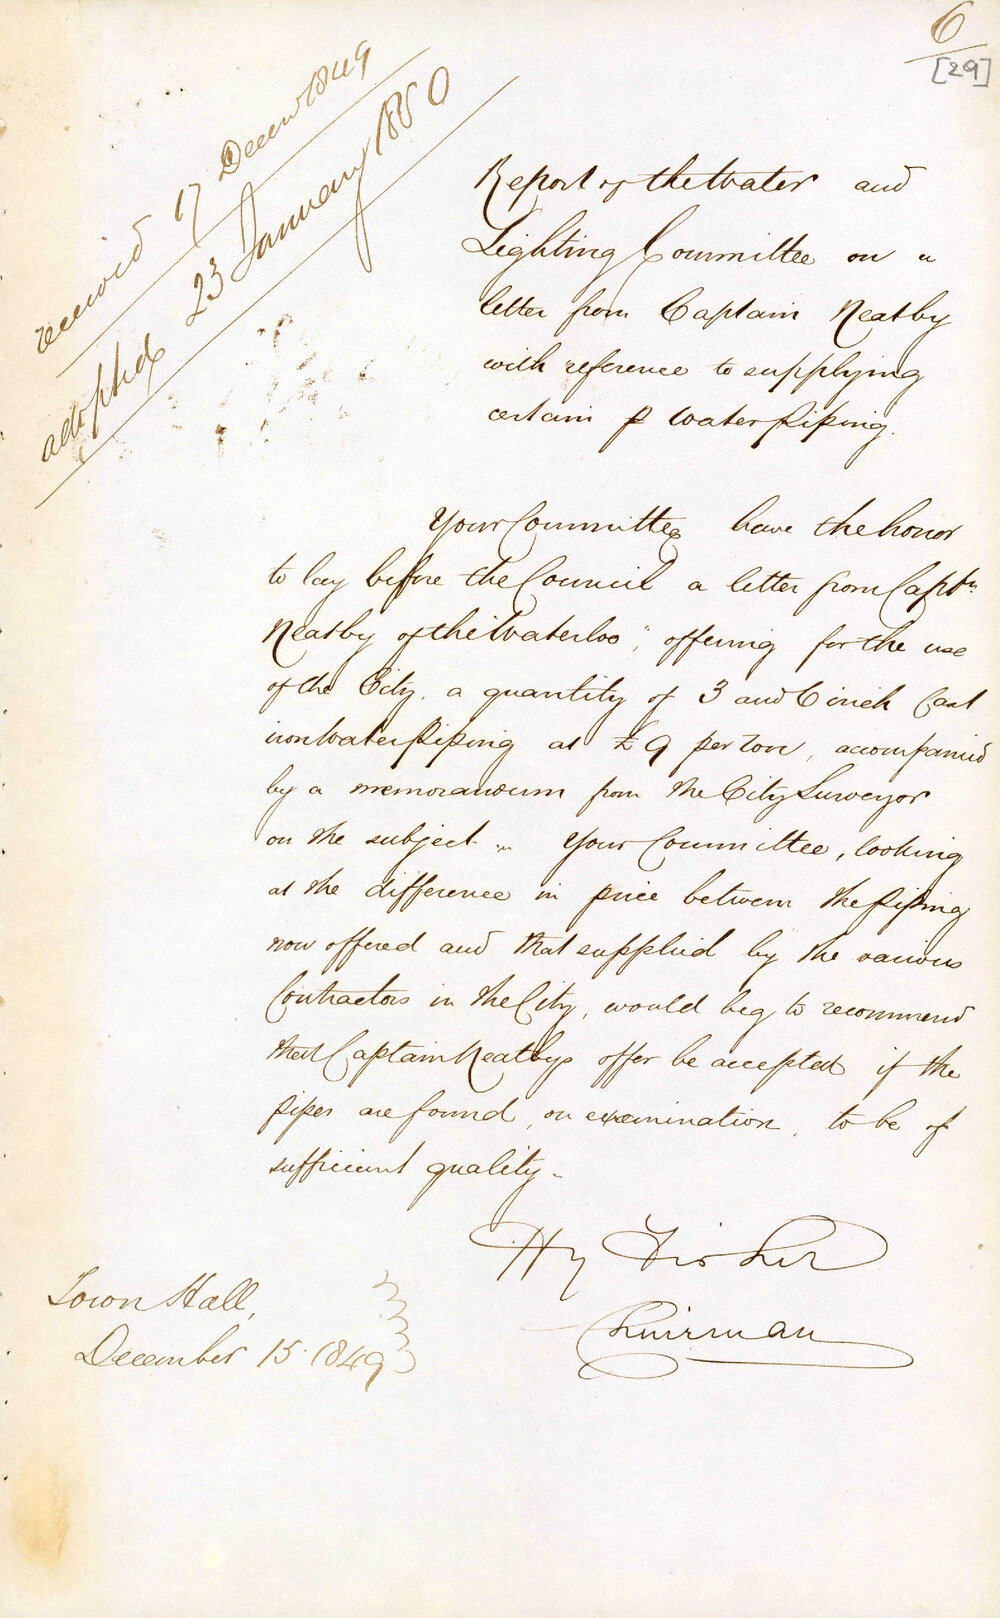 6
[29]
received 17 Decem 1849
adopted 23 January 1850
Report of the Water and
Lighting Committee on a
letter from Captain Neatby
with reference to supplying
certain p water piping.
Your Committee have the honor
to lay before the Council a letter from Captn.
Neatby of the "Waterloo", offering for the use
of the City. a quantity of 3 and 6 inch Cast
iron Water Piping at £9 per ton, accompanied
by a memorandum from the City Surveyor
on the subject. Your Committee, looking
at the difference in price between the Piping
now offered and that supplied by the various
Contractors in the City, would beg to recommend
that Captain Neatbys offer be accepted if the
pipes are found, on examination, to be of
sufficient quality.
Hy Fisher
Chairman
Town Hall,
December 15. 1849